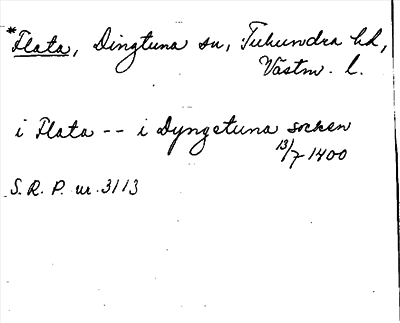 *Flata, Dingtuna sn, Tuhundra hd,
Västm. l.
i Flata -- i Dyngetuna socken
13/7 1400
S.R.P. nr. 3113